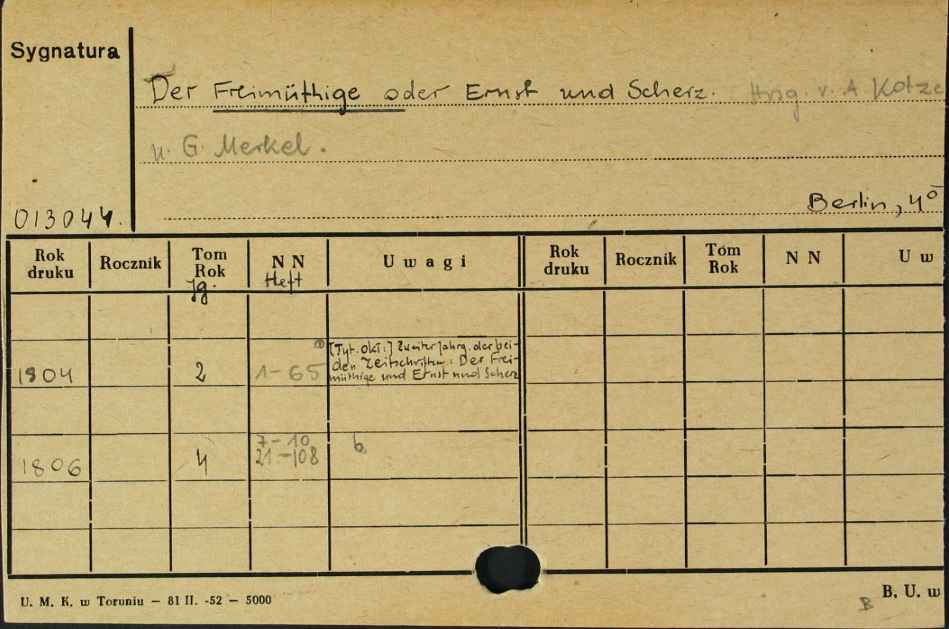 Sygnatura
Der Freimüthige oder Ernst und Scherz. Hrsg. v. A Kotze
u. G. Merkel.
013044.
Berlin, 4°
Rok druku Rocznik Tom Rok N N U w a g i Rok druku Rocznik Tom Rok N N U w
Jg. Heft
1804 2 1-65 [Tyt. okł:] Zweiter Jahrg. der bei-
den Zeitschriften: Der Frei-
müthige und Ernst und Scherz
7-10 b.
1806 4 21-108
U. M. K. w Toruniu — 81 II. -52 — 5000
B. U. w
B